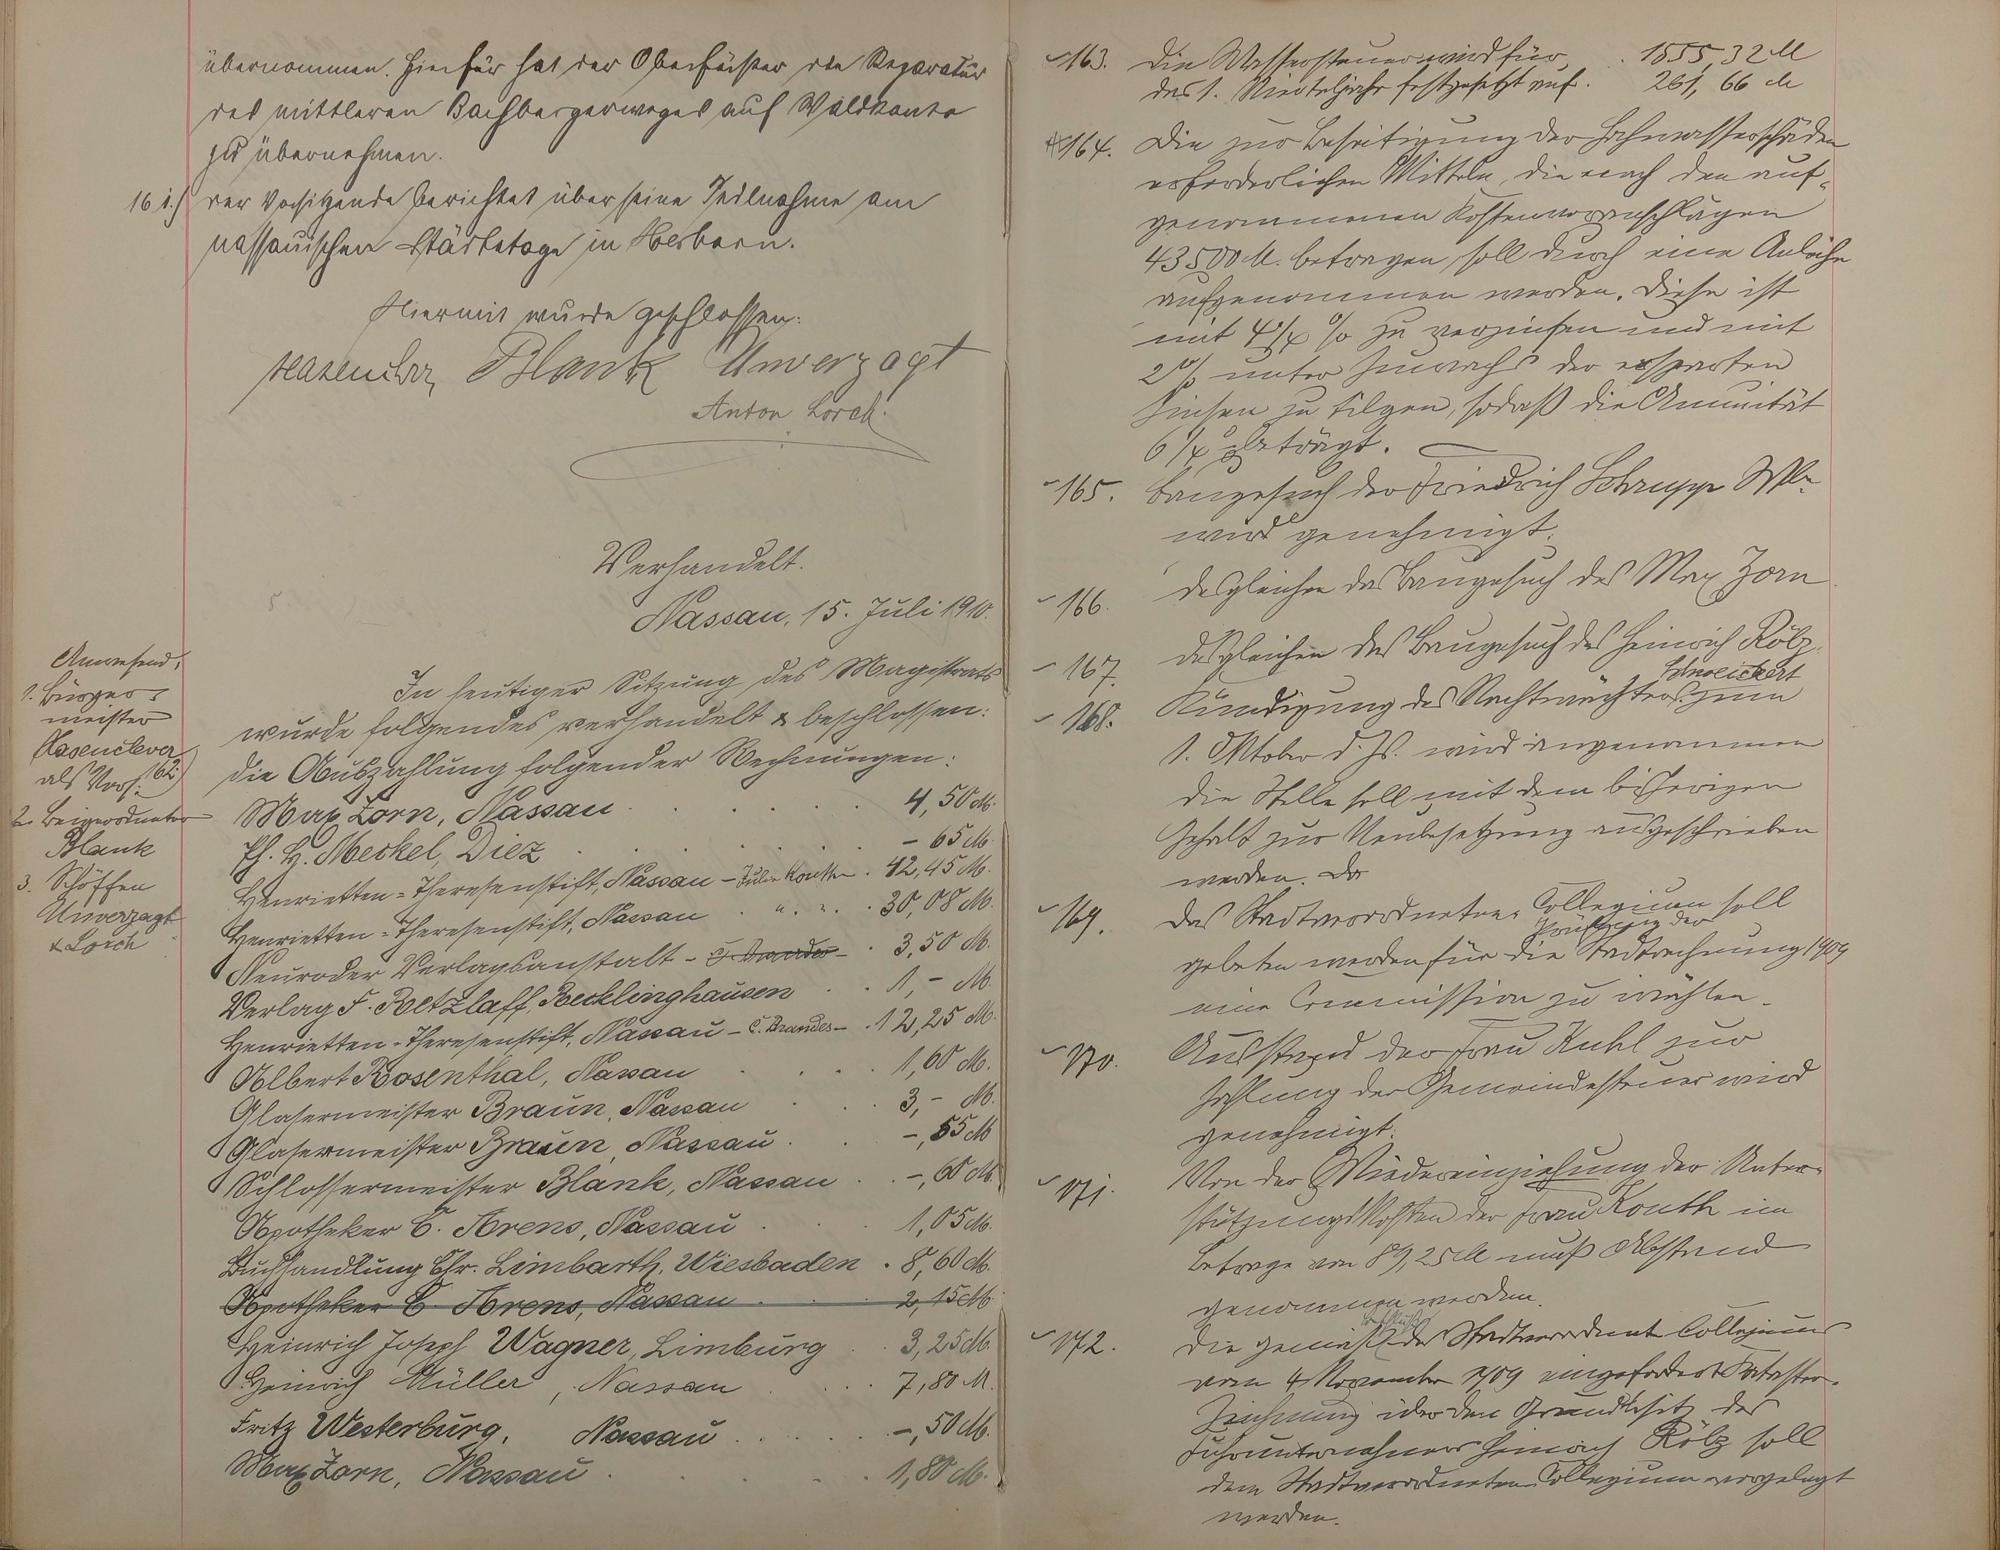 übernommen. Hierfür hat der Oberförster die Reparatur
des mittleren Bachbergerweges auf Waldkonto
zu übernehmen.
161.) der Vorsitzende berichtet über seine Teilnahme am
nassauischen Städtetage in Herborn.
Hiermit wurde geschlossen:
Hasenclever Blank Unverzagt
Anton Lorch.
Verhandelt.
Nassau, 15. Juli 1910.
Anwesend:
1. Bürger-
meister
Hasenclever
als Vors.
2. Beigeordneter
Blank
3. Schöffen
Unverzagt
& Lorch
In heutiger Sitzung des Magistrats
wurde folgendes verhandelt & beschlossen:
162.) die Auszahlung folgender Rechnungen:
Max Zorn, Nassau 4,50 M.
Ph. H. Meckel, Diez – 65 M.
Henrietten-Theresenstift, Nassau – Julie Konth . 42,45 M.
Henrietten-Theresenstift, Nassau . " . " . 30,08 M.
Neuroder Verlagsanstalt – C. Brandes – . 3,50 M.
Verlag F. Retzlaff, Recklinghausen . . 1,– M.
Henrietten-Theresenstift, Nassau – C. Brandes – . 12,25 M.
Albert Rosenthal, Nassau 1,60 M.
Glasermeister Braun, Nassau 3,– M.
Glasermeister Braun, Nassau –,55 M
Schlossermeister Blank, Nassau –,60 M.
Apotheker C. Arens, Nassau 1,05 M.
Buchhandlung Chr. Limbarth, Wiesbaden . 8,60 M.
Apotheker C Arens, Nassau 2,15 M
Heinrich Joseph Wagner, Limburg 3,25 M.
Heinrich Müller, Nassau 7,80 M.
Fritz Westerburg, Nassau –,50 M.
Max Zorn, Nassau 1,80 M.
163. Die Wassersteuer wird für . 1555,32 M
des 1. Vierteljahr festgesetzt auf. 261,66 M
164. Die zur Beseitigung der Hochwasserschäden
erforderlichen Mitteln, die nach den auf-
genommenen Kostenvoranschlägen
43500 M. betragen, soll durch eine Anleihe
aufgenommen werden. Diese ist
mit 4 1/4 % zu verzinsen und mit
2 % unter Zuwachs der ersparten
Zinsen zu tilgen, sodaß die Annuität
6 1/4 % beträgt.
165. Baugesuch der Friedrich Schrupp Ww.
wird genehmigt.
166. desgleichen das Baugesuch des Max Zorn
167. desgleichen das Baugesuch des Heinrich Rölz.
Schweickert
168. Kündigung des Nachtwächters zum
1. Oktober d. Js. wird angenommen
die Stelle soll mit dem bisherigen
Gehalt zur Neubesetzung ausgeschrieben
werden.
169. Das Stadtverordneten-Collegium soll
Prüfung der
gebeten werden für die Stadtrechnung 1909
eine Commission zu wählen.
170. Ausstand der Frau Kuhl zur
Zahlung der Gemeindesteuer wird
genehmigt.
171. Von der Wiedereinziehung der Unter-
stützungskosten der Frau Konth im
Betrage von 89,25 M muß Abstand
genommen werden.
Beschluß
172. Die gemäß des Stadtverordnet. Collegiums
vom 4 November 1909 eingeforderte Kataster-
Zeichnung über den Grundbesitz des
Fuhrunternehmers Heinrich Rölz soll
dem Stadtverordneten Collegium vorgelegt
werden.